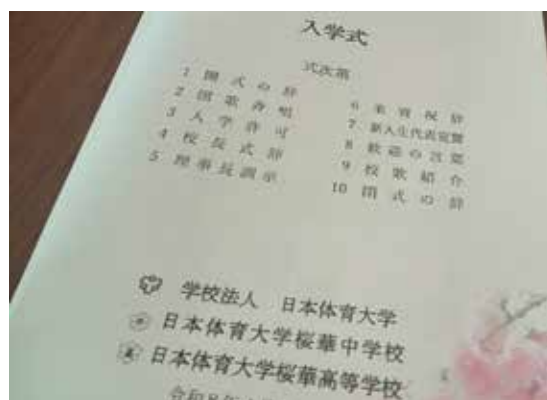 入学式
式次第
1 開式の辞
2 国歌斉唱
3 入学許可
4 校長式辞
5 理事長訓示
6 来賓祝辞
7 新入生代表宣誓
8 歓迎の言葉
9 校歌紹介
10 閉式の辞
学校法人 日本体育大学
日本体育大学桜華中学校
日本体育大学桜華高等学校
令和8年